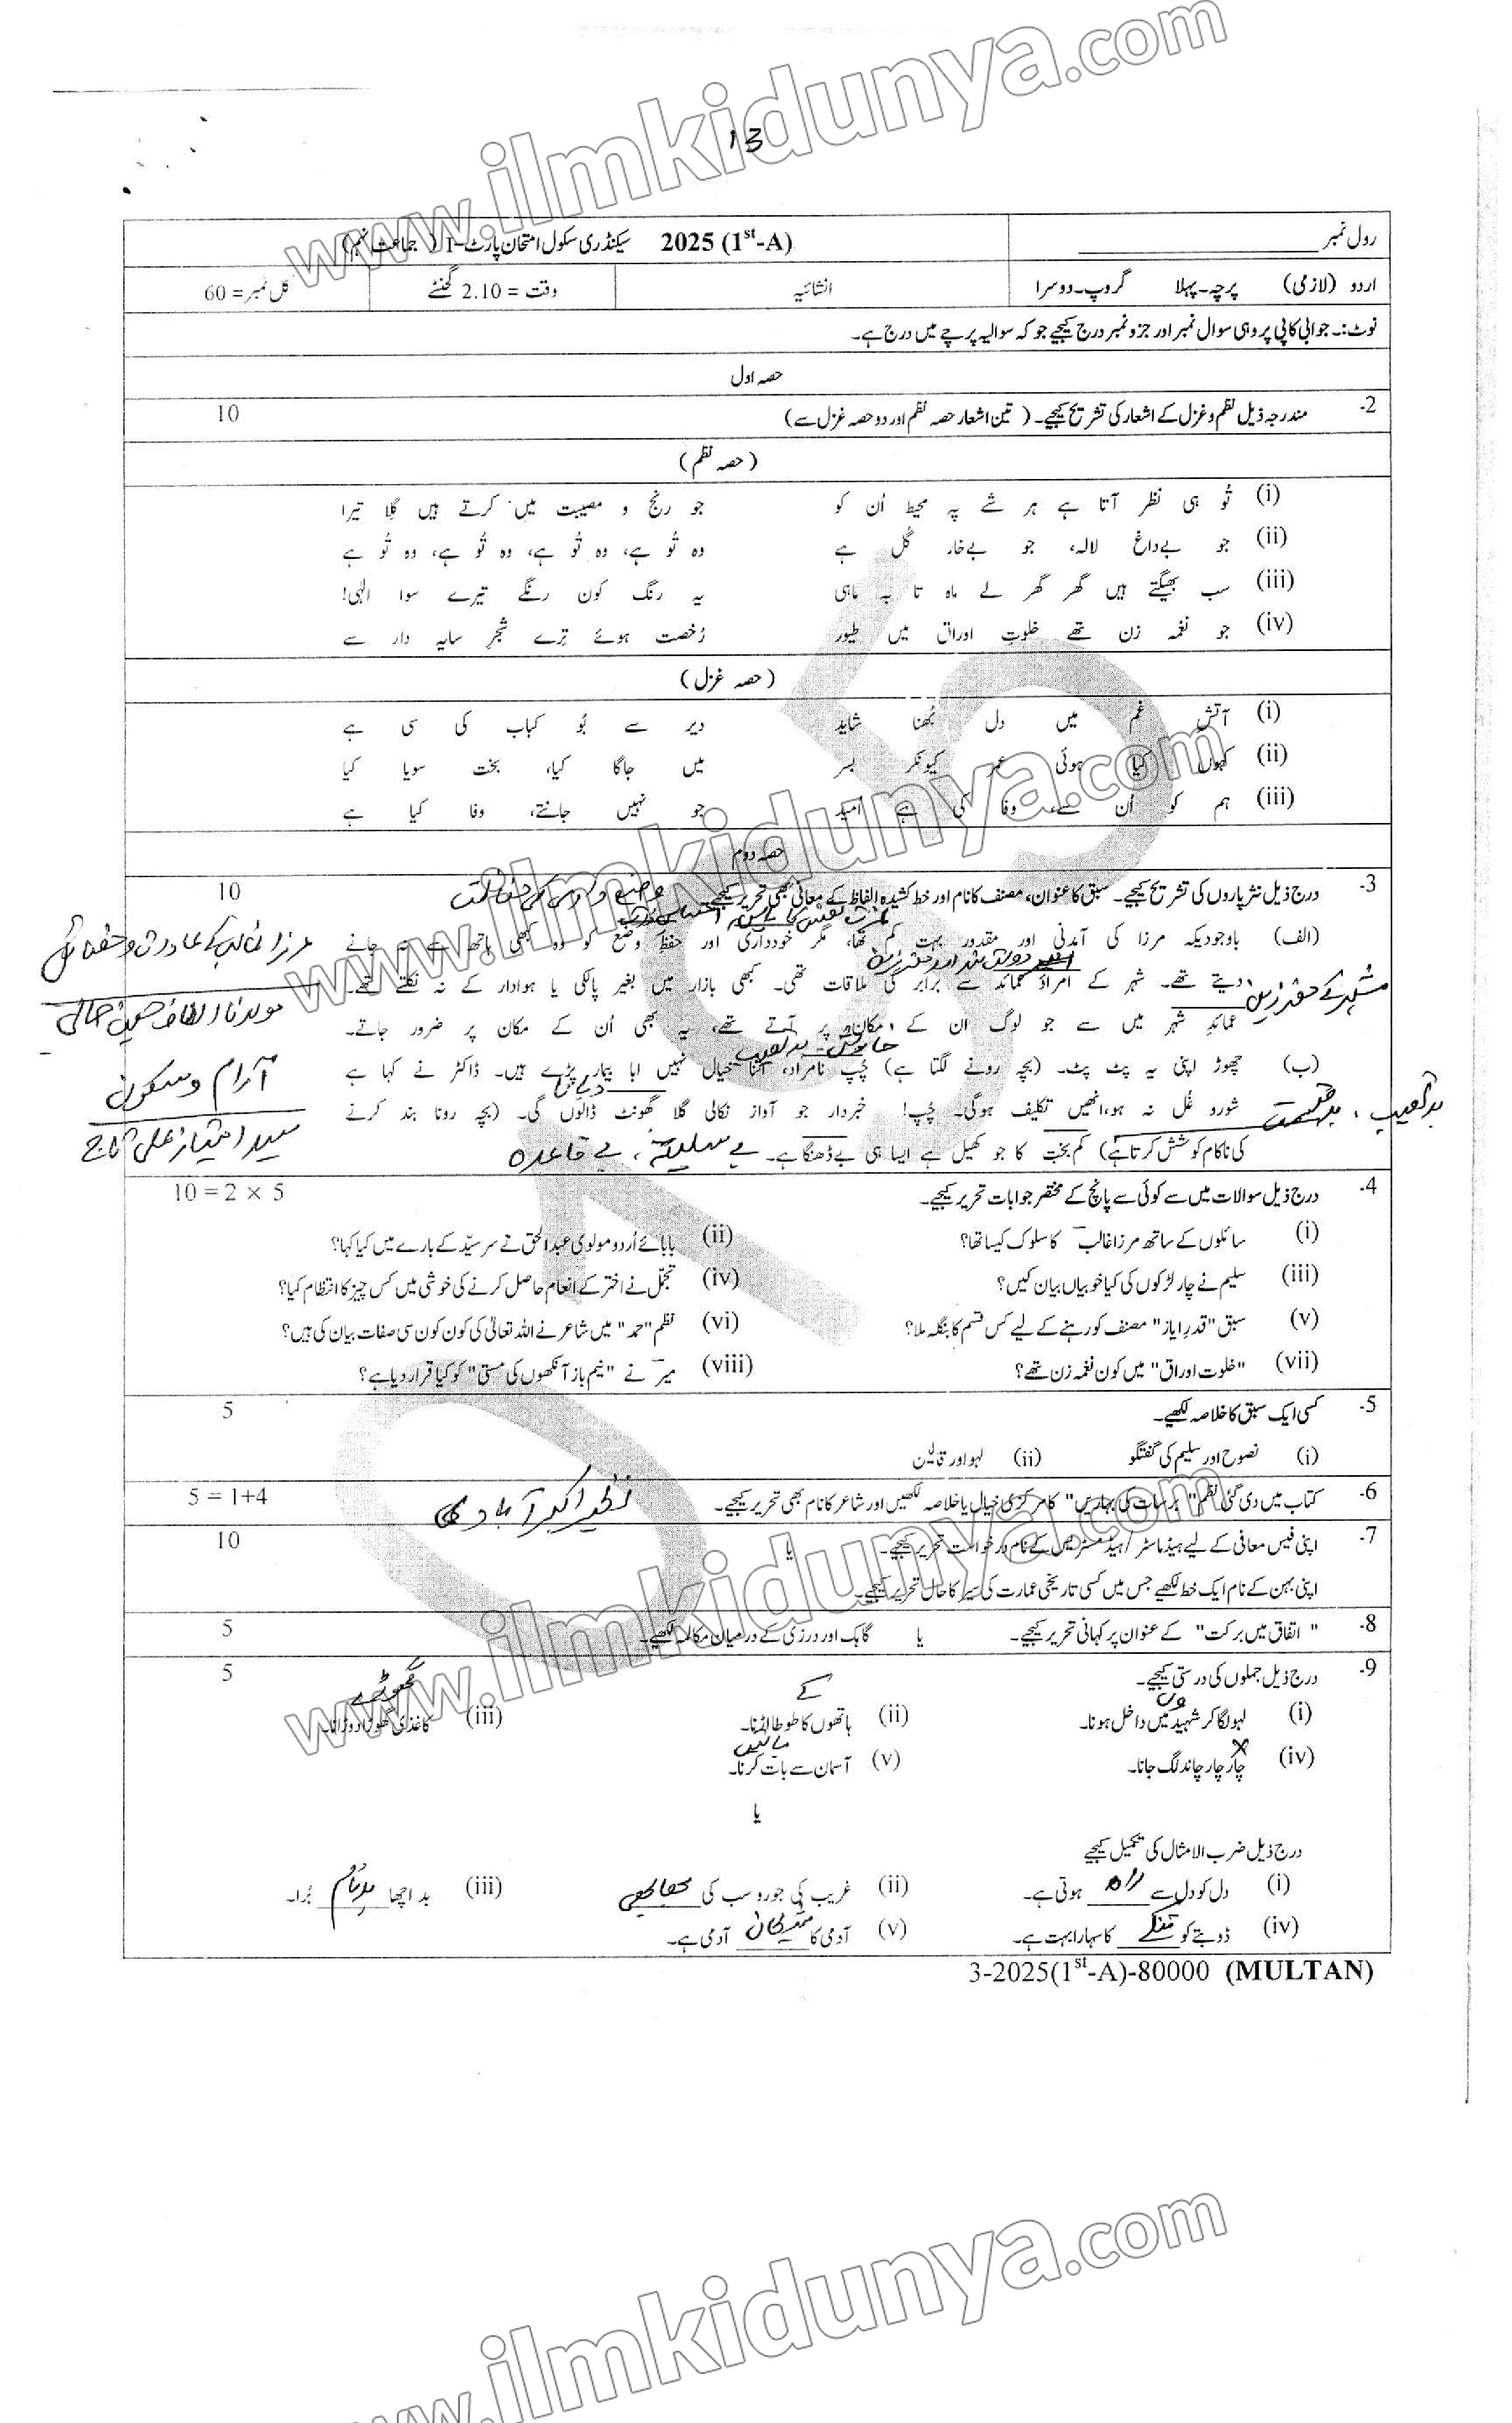 www.ilmkidunya.com
13
رول نمبر ____________ 2025 (1st-A) سیکنڈری سکول امتحان پارٹ-I ( جماعت نہم)
اردو (لازمی) پرچہ۔پہلا گروپ۔دوسرا انشائیہ وقت = 2.10 گھنٹے کل نمبر= 60
نوٹ:۔ جوابی کاپی پر وہی سوال نمبر اور جزو نمبر درج کیجیے جو کہ سوالیہ پرچے میں درج ہے۔
حصہ اول
2- مندرجہ ذیل نظم و غزل کے اشعار کی تشریح کیجیے۔ ( تین اشعار حصہ نظم اور دو حصہ غزل سے) 10
( حصہ نظم )
(i) تُو ہی نظر آتا ہے ہر شے پہ محیط اُن کو جو رنج و مصیبت میں کرتے ہیں گِلا تیرا
(ii) جو بے داغ لالہ، جو بے خار گُل ہے وہ تُو ہے، وہ تُو ہے، وہ تُو ہے، وہ تُو ہے
(iii) سب بھیگتے ہیں گھر گھر لے ماہ تا بہ ماہی یہ رنگ کون رنگے تیرے سوا الٰہی!
(iv) جو نغمہ زن تھے خلوتِ اوراق میں طیور رُخصت ہوئے تِرے شجرِ سایہ دار سے
( حصہ غزل )
(i) آتشِ غم میں دل بُھنا شاید دیر سے بُو کباب کی سی ہے
(ii) کہوں کیا ہوئی عمر کیونکر بسر میں جاگا کیا، بخت سویا کیا
(iii) ہم کو اُن سے، وفا کی ہے اُمید جو نہیں جانتے، وفا کیا ہے
www.ilmkidunya.com
حصہ دوم
3- درج ذیل نثرپاروں کی تشریح کیجیے۔ سبق کا عنوان، مصنف کا نام اور خط کشیدہ الفاظ کے معانی بھی تحریر کیجیے۔ 10
(الف) باوجودیکہ مرزا کی آمدنی اور مقدور بہت کم تھا، مگر خودداری اور حفظِ وضع کو وہ کبھی ہاتھ سے نہ جانے
مرزا غالب کے عادات و خصائل
دیتے تھے۔ شہر کے اُمراؤ عمائد سے برابر کی ملاقات تھی۔ کبھی بازار میں بغیر پالکی یا ہوادار کے نہ نکلتے تھے۔
مولانا الطاف حسین حالی
عمائدِ شہر میں سے جو لوگ ان کے مکان پر آتے تھے، یہ بھی اُن کے مکان پر ضرور جاتے۔
(ب) چھوڑ اپنی یہ پٹ پٹ۔ (بچہ رونے لگتا ہے) چُپ نامراد، اتنا خیال نہیں ابا بیمار پڑے ہیں۔ ڈاکٹر نے کہا ہے
آرام و سکون
شور و غُل نہ ہو، انھیں تکلیف ہوگی۔ چُپ! خبردار جو آواز نکالی گلا گھونٹ ڈالوں گی۔ (بچہ رونا بند کرنے
بد نصیب، بد قسمت
سید امتیاز علی تاج
کی ناکام کوشش کرتا ہے) کم بخت کا جو کھیل ہے ایسا ہی بے ڈھنگا ہے۔ بے سلیقہ، بے قاعدہ
4- درج ذیل سوالات میں سے کوئی سے پانچ کے مختصر جوابات تحریر کیجیے۔ 10 = 2 × 5
(i) سائلوں کے ساتھ مرزا غالبؔ کا سلوک کیسا تھا؟ (ii) بابائے اُردو مولوی عبدالحق نے سرسیّد کے بارے میں کیا کہا؟
(iii) سلیم نے چار لڑکوں کی کیا خوبیاں بیان کیں؟ (iv) تجمّل نے اختر کے انعام حاصل کرنے کی خوشی میں کس چیز کا انتظام کیا؟
(v) سبق "قدرِ ایاز" مصنف کو رہنے کے لیے کس قسم کا بنگلہ ملا؟ (vi) نظم "حمد" میں شاعر نے اللہ تعالیٰ کی کون کون سی صفات بیان کی ہیں؟
(vii) "خلوتِ اوراق" میں کون نغمہ زن تھے؟ (viii) میرؔ نے "نیم باز آنکھوں کی مستی" کو کیا قرار دیا ہے؟
5- کسی ایک سبق کا خلاصہ لکھیے۔ 5
(i) نصوح اور سلیم کی گفتگو (ii) لہو اور قالین
6- کتاب میں دی گئی نظم "برسات کی بہاریں" کا مرکزی خیال یا خلاصہ لکھیں اور شاعر کا نام بھی تحریر کیجیے۔ نظیر اکبر آبادی 5 = 1+4
7- اپنی فیس معافی کے لیے ہیڈ ماسٹر / ہیڈ مسٹریس کے نام درخواست تحریر کیجیے۔ یا 10
اپنی بہن کے نام ایک خط لکھیے جس میں کسی تاریخی عمارت کی سیر کا حال تحریر کیجیے۔
8- "اتفاق میں برکت" کے عنوان پر کہانی تحریر کیجیے۔ یا گاہک اور درزی کے درمیان مکالمہ لکھیے۔ 5
www.ilmkidunya.com
9- درج ذیل جملوں کی درستی کیجیے۔ 5
وں کے گھوڑے
(i) لہو لگا کر شہید میں داخل ہونا۔ (ii) ہاتھوں کا طوطا اڑنا۔ (iii) کاغذی گھوڑا دوڑانا۔
باتیں
(iv) چار چار چاند لگ جانا۔ (v) آسمان سے بات کرنا۔
یا
درج ذیل ضرب الامثال کی تکمیل کیجیے
(i) دل کو دل سے راہ ہوتی ہے۔ (ii) غریب کی جورو سب کی بھابھی (iii) بد اچھا بدنام بُرا۔
(iv) ڈوبتے کو تنکے کا سہارا بہت ہے۔ (v) آدمی کا شیطان آدمی ہے۔
3-2025(1st-A)-80000 (MULTAN)
www.ilmkidunya.com